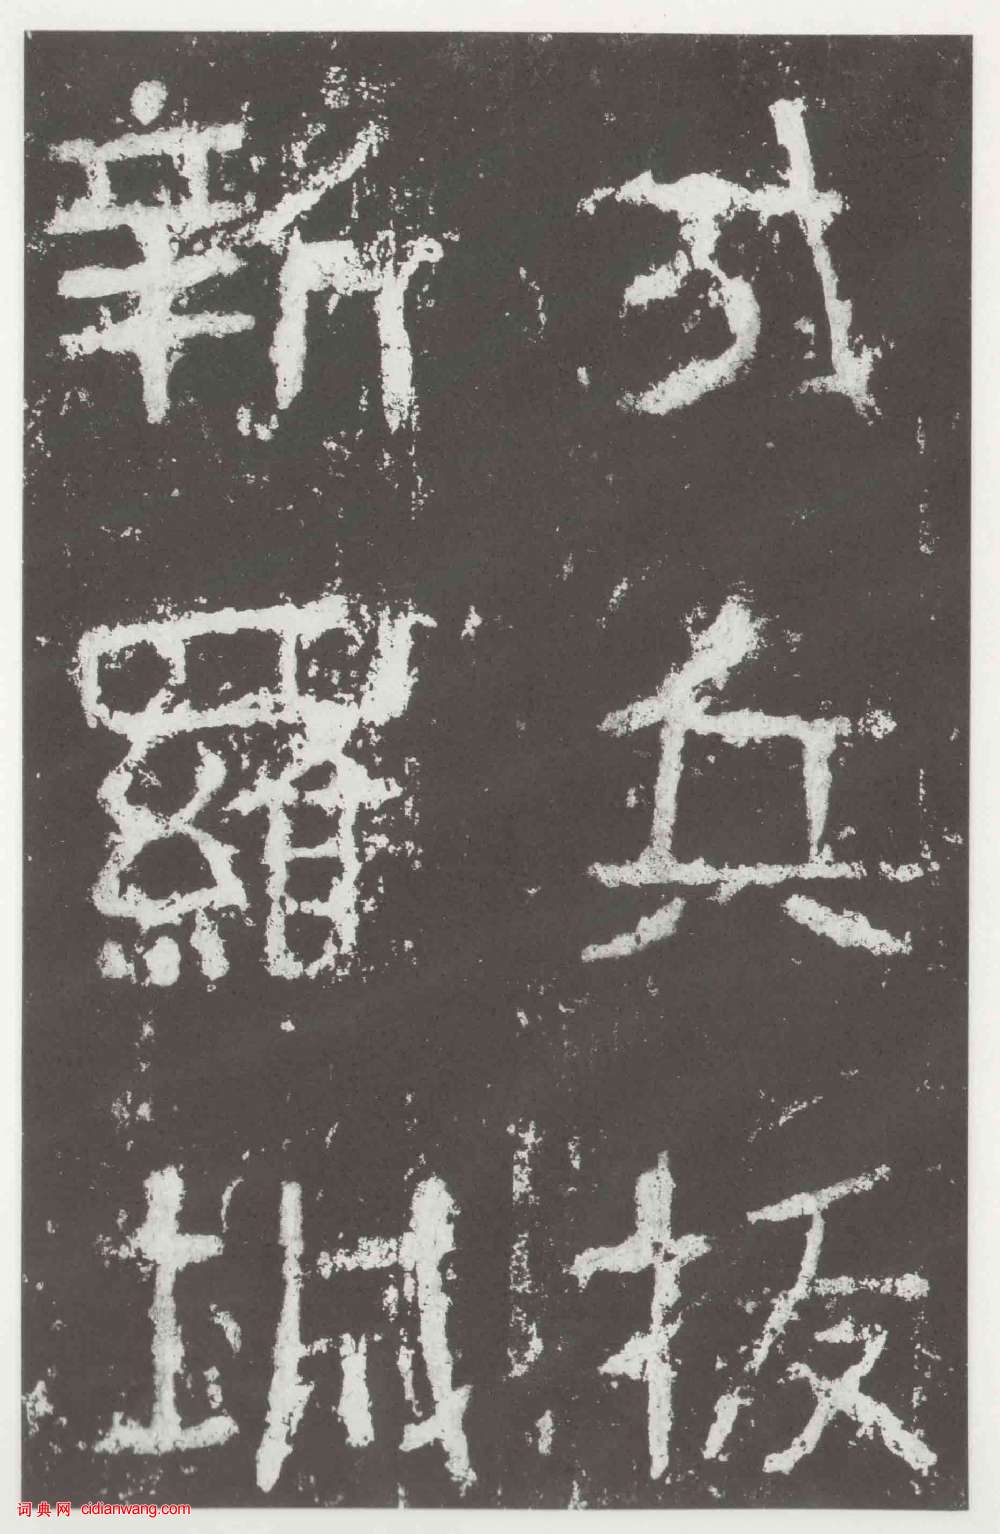 戍兵拔
新羅城
词典网 cidianwang.com